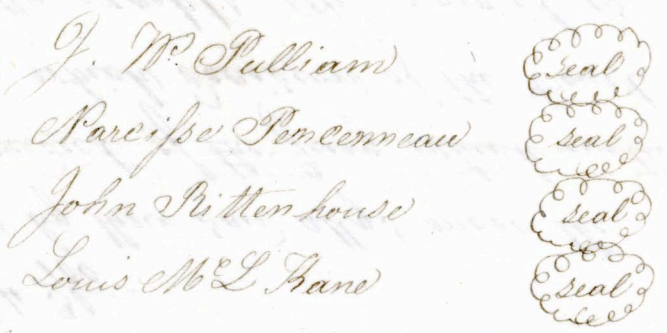 J. Wm. Pulliam seal
Narcisse Pencenneau seal
John Rittenhouse seal
Louis McL Kane seal